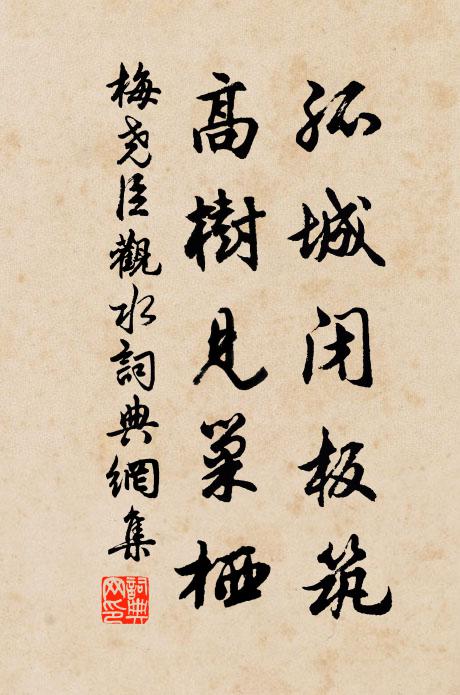 孤城闭板筑
高樹見巢栖
梅尧臣觀水詞典網集
詞典網印